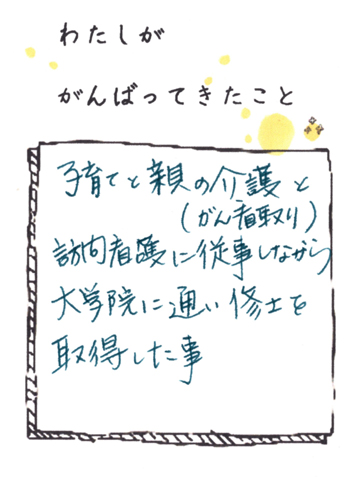 わたしが
がんばってきたこと
子育てと親の介護と
(がん看取り)
訪問看護に従事しながら
大学院に通い修士を
取得した事